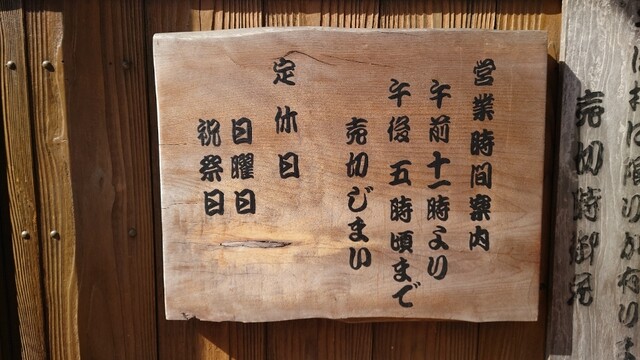 限りがありま
売切時御免
営業時間案内
午前十一時より
午後五時頃まで
売切じまい
定休日
日曜日
祝祭日